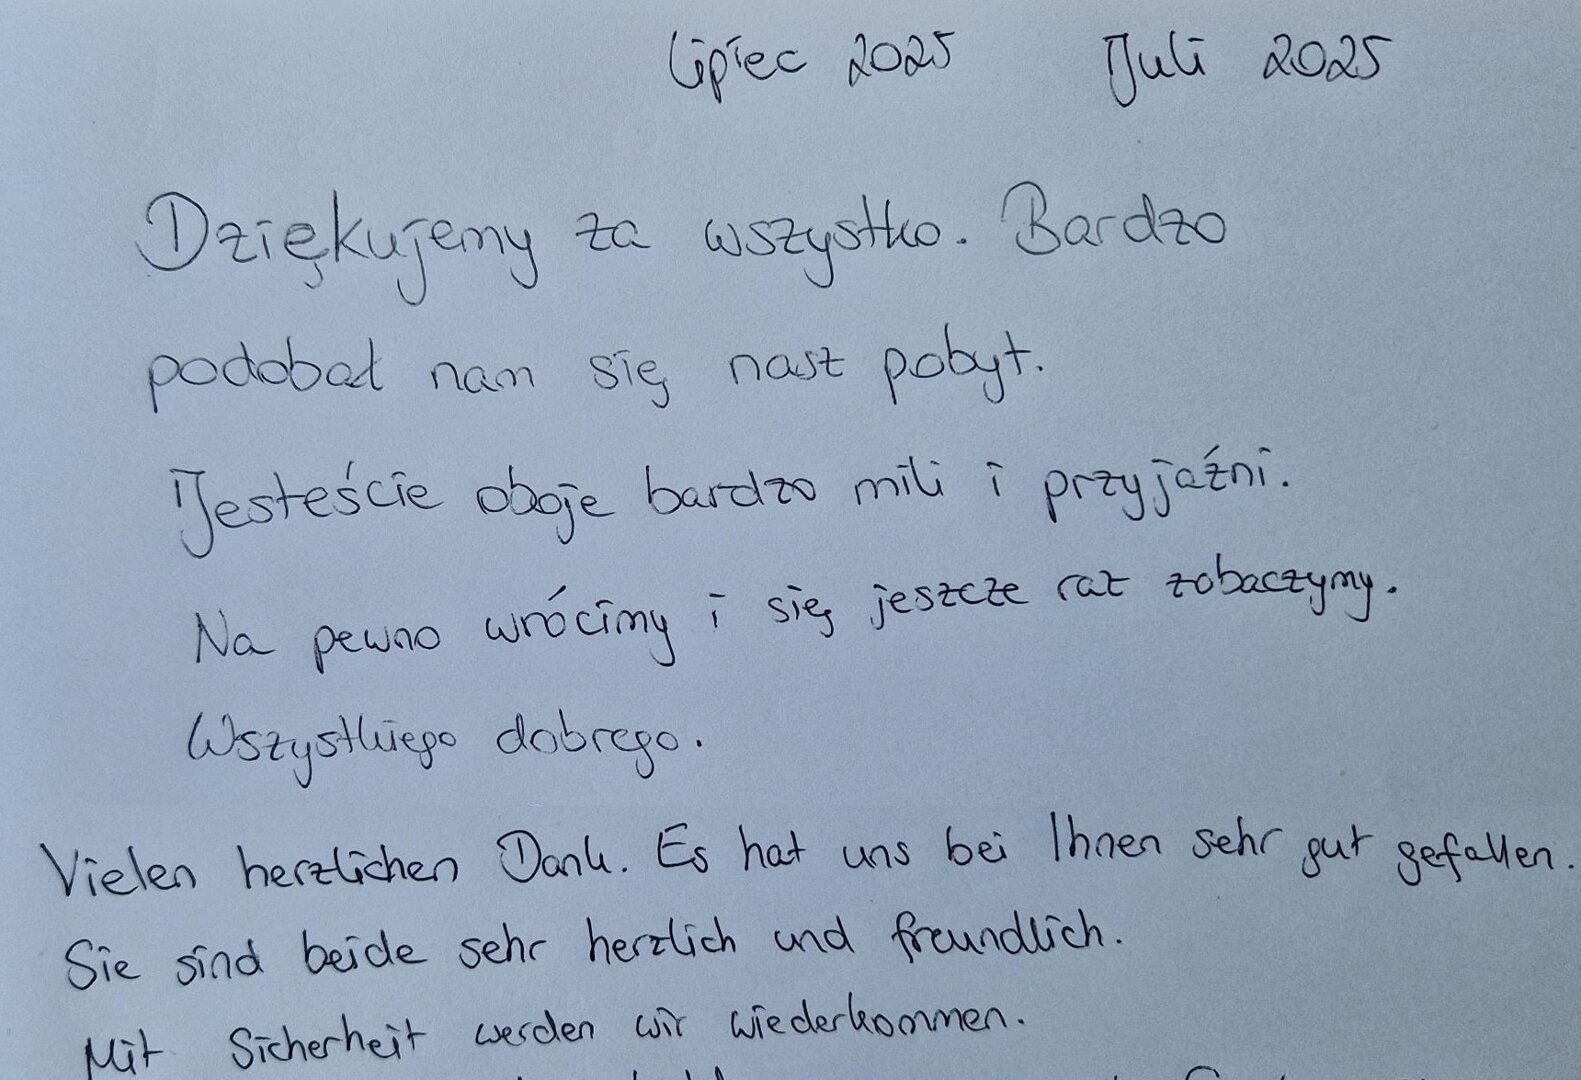 Lipiec 2025 Juli 2025
Dziękujemy za wszystko. Bardzo
podobał nam się nasz pobyt.
Jesteście oboje bardzo mili i przyjaźni.
Na pewno wrócimy i się jeszcze raz zobaczymy.
Wszystkiego dobrego.
Vielen herzlichen Dank. Es hat uns bei Ihnen sehr gut gefallen.
Sie sind beide sehr herzlich und freundlich.
Mit Sicherheit werden wir wiederkommen.